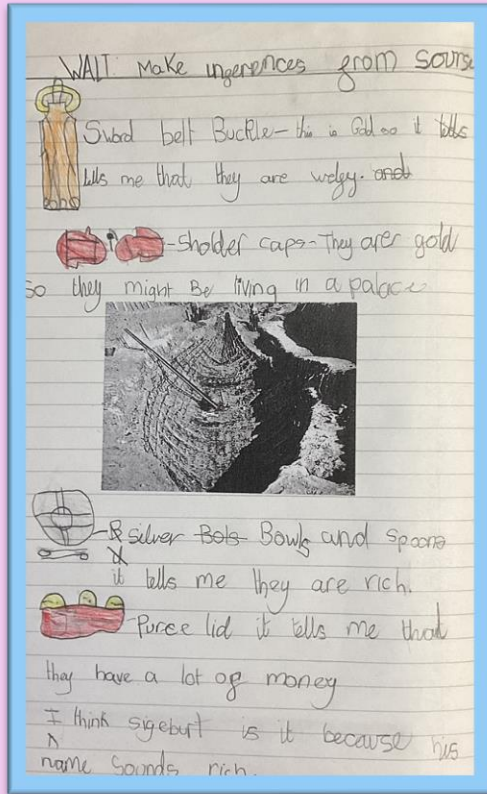 WALT Make ingerences from sourse
Sword belt Buckle- this is Gold so it tells
tells me that they are welgy. and
-Sholder caps- They arer gold
so they might Be living in a palace
silver Bols Bowls and spoons
it tells me they are rich.
-Puree lid it tells me that
they have a lot of money
I think sigeburt is it because his
name sounds rich.